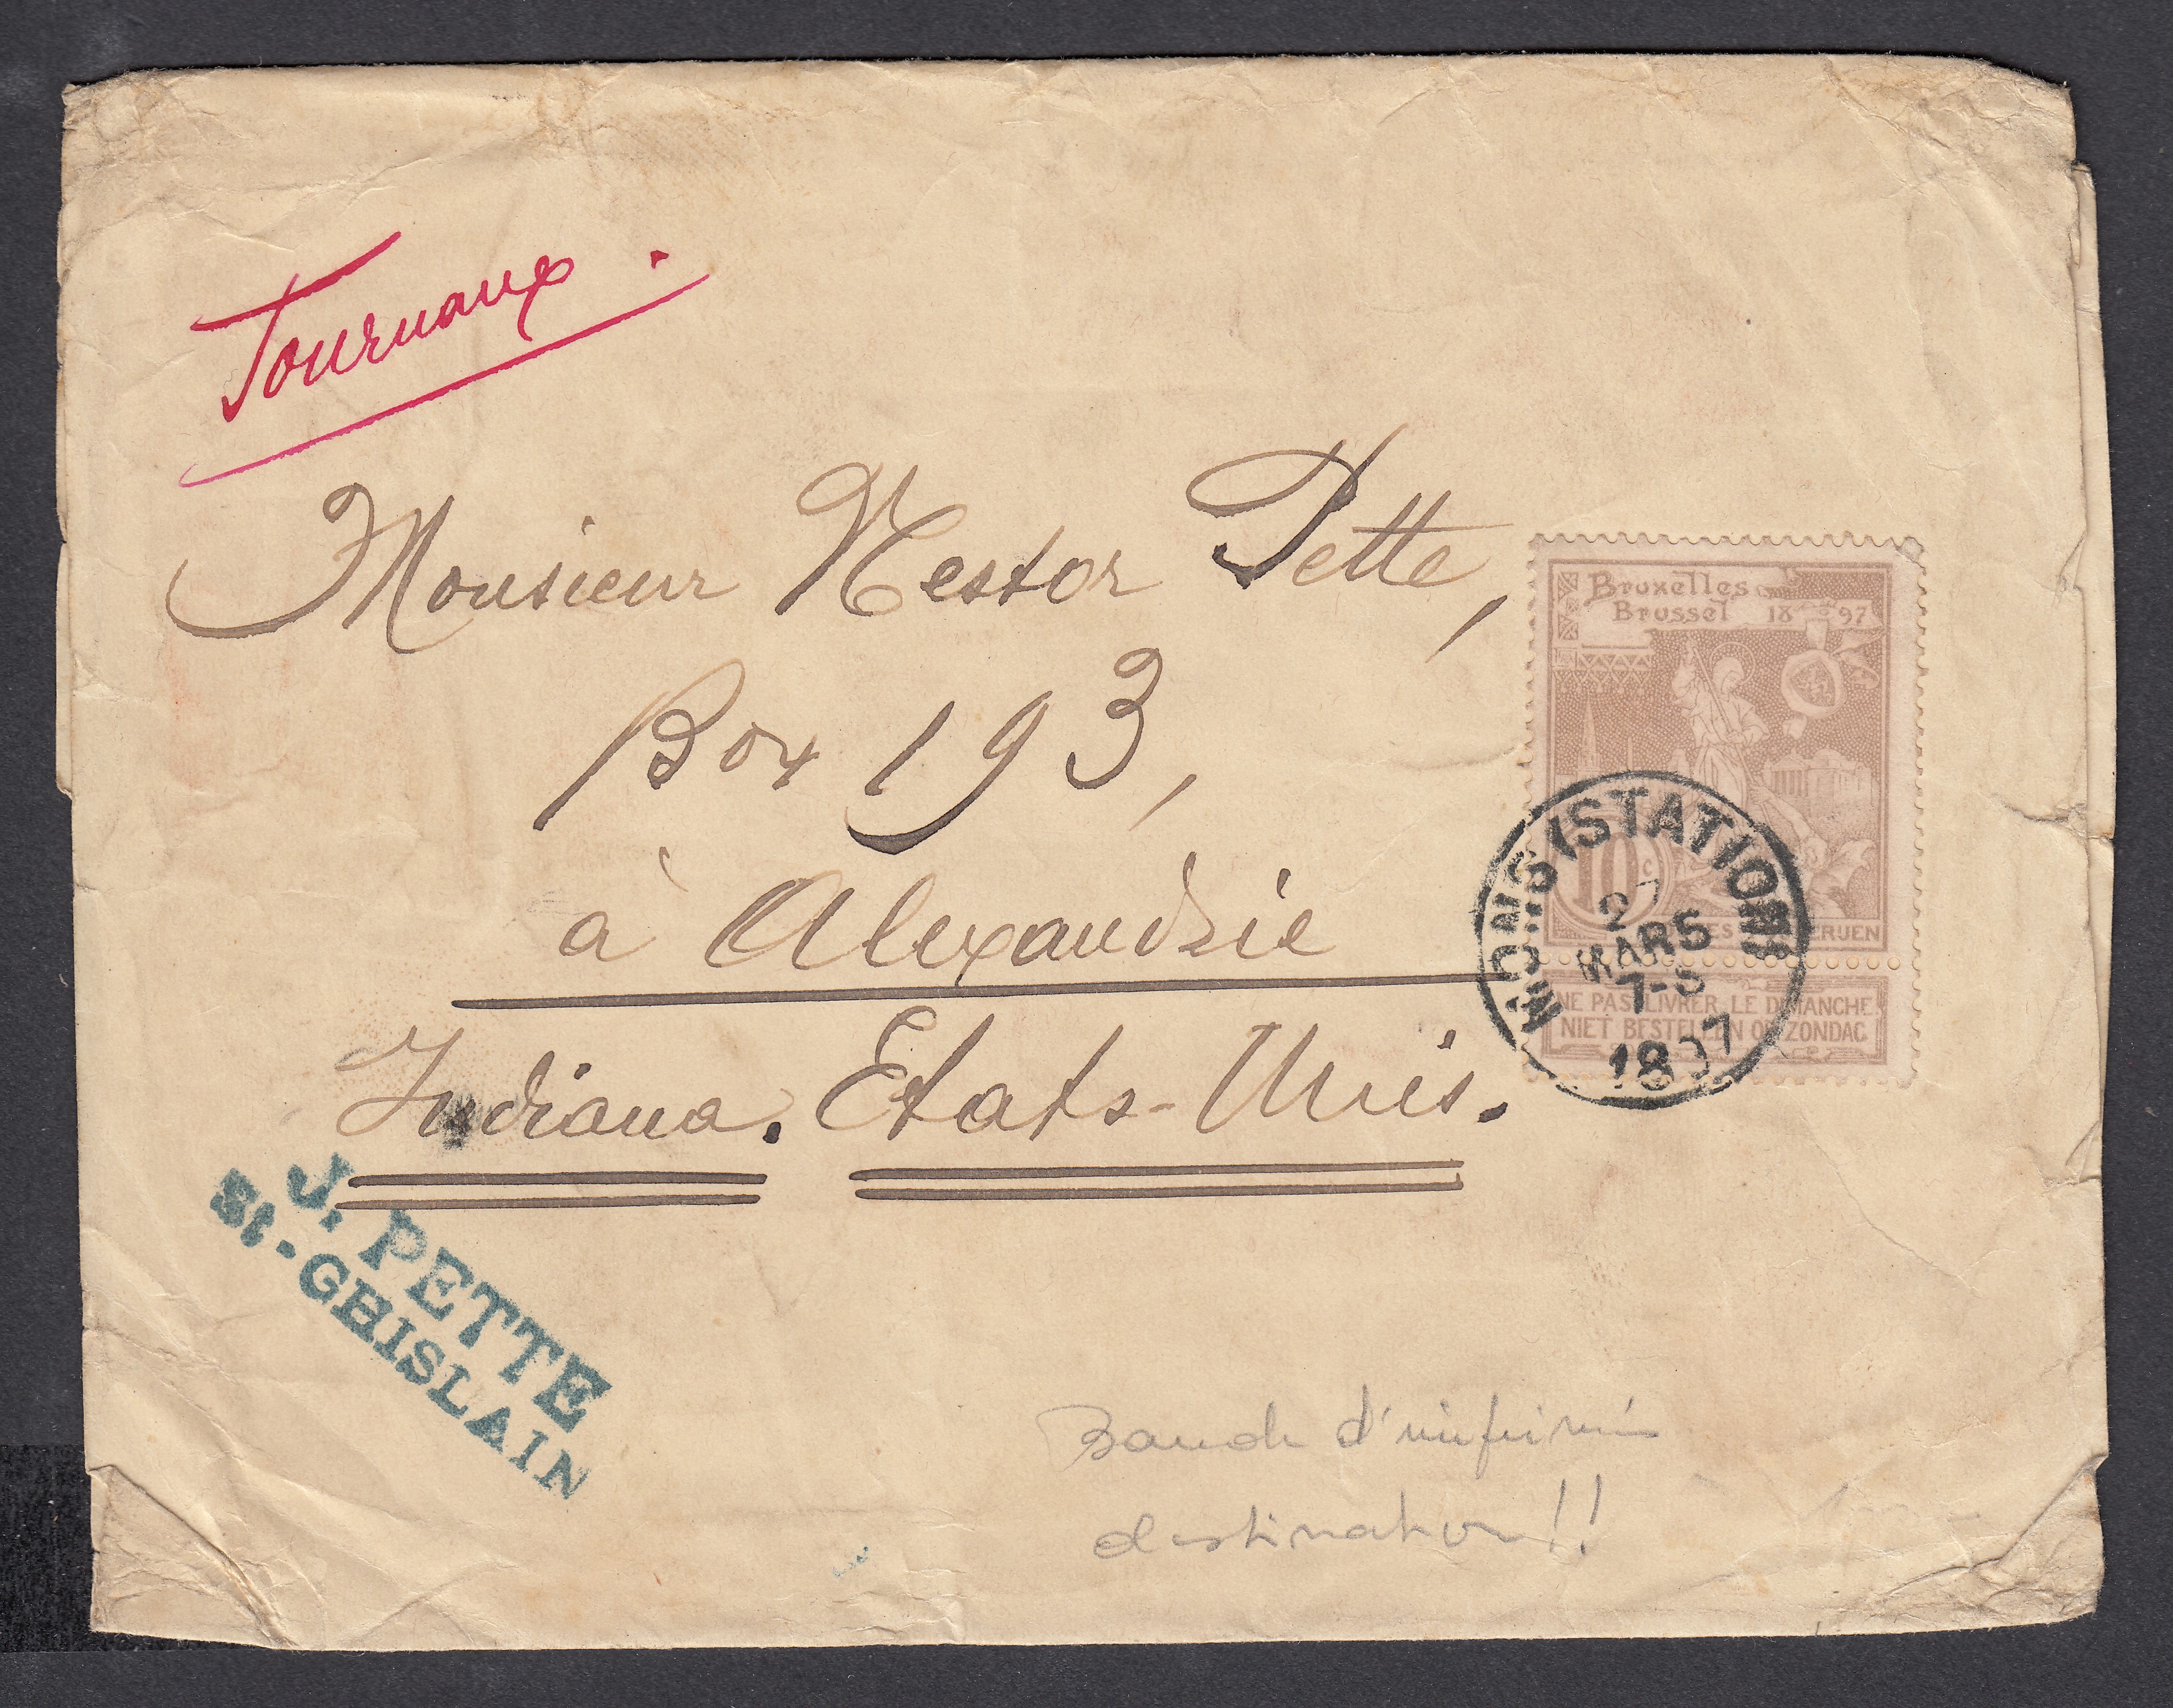 Journaux.
Monsieur Nestor Pette,
Box 193,
à Alexandrie
Indiana. Etats-Unis.
Bruxelles
Brussel 1897
10c
NE PAS LIVRER LE DIMANCHE
NIET BESTELLEN OP ZONDAG
MONS (STATION)
27
MARS
7-8
1897
J. PETTE
St-GHISLAIN
Bande d'imprimés
destination!!